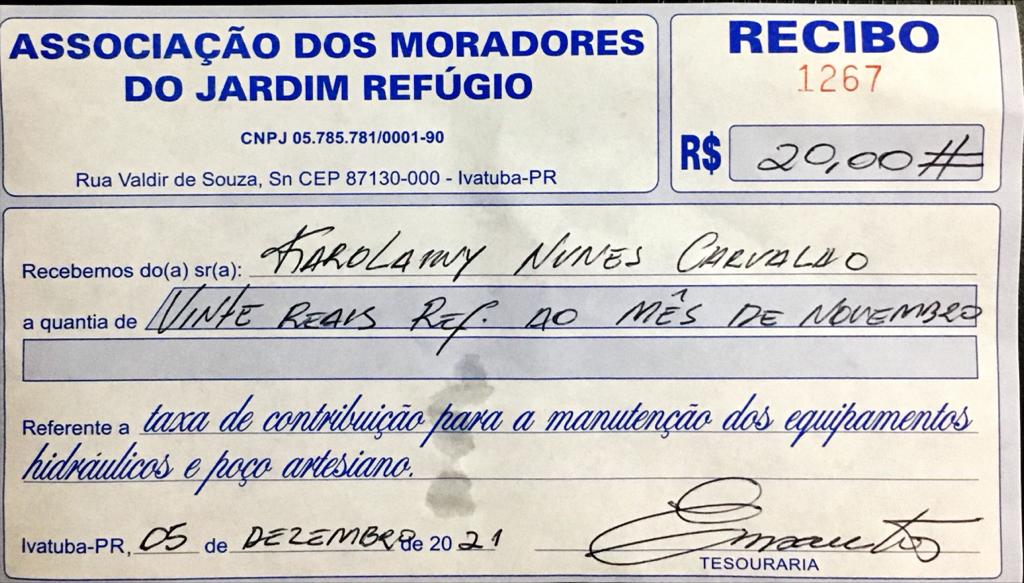 ASSOCIAÇÃO DOS MORADORES
DO JARDIM REFÚGIO
CNPJ 05.785.781/0001-90
Rua Valdir de Souza, Sn CEP 87130-000 - Ivatuba-PR
RECIBO
1267
R$ 20,00 #
Recebemos do(a) sr(a): KAROLAINY NUNES CARVALHO
a quantia de VINTE REAIS REF. AO MÊS DE NOVEMBRO
Referente a taxa de contribuição para a manutenção dos equipamentos
hidráulicos e poço artesiano.
Ivatuba-PR, 05 de DEZEMBRO de 2021
TESOURARIA